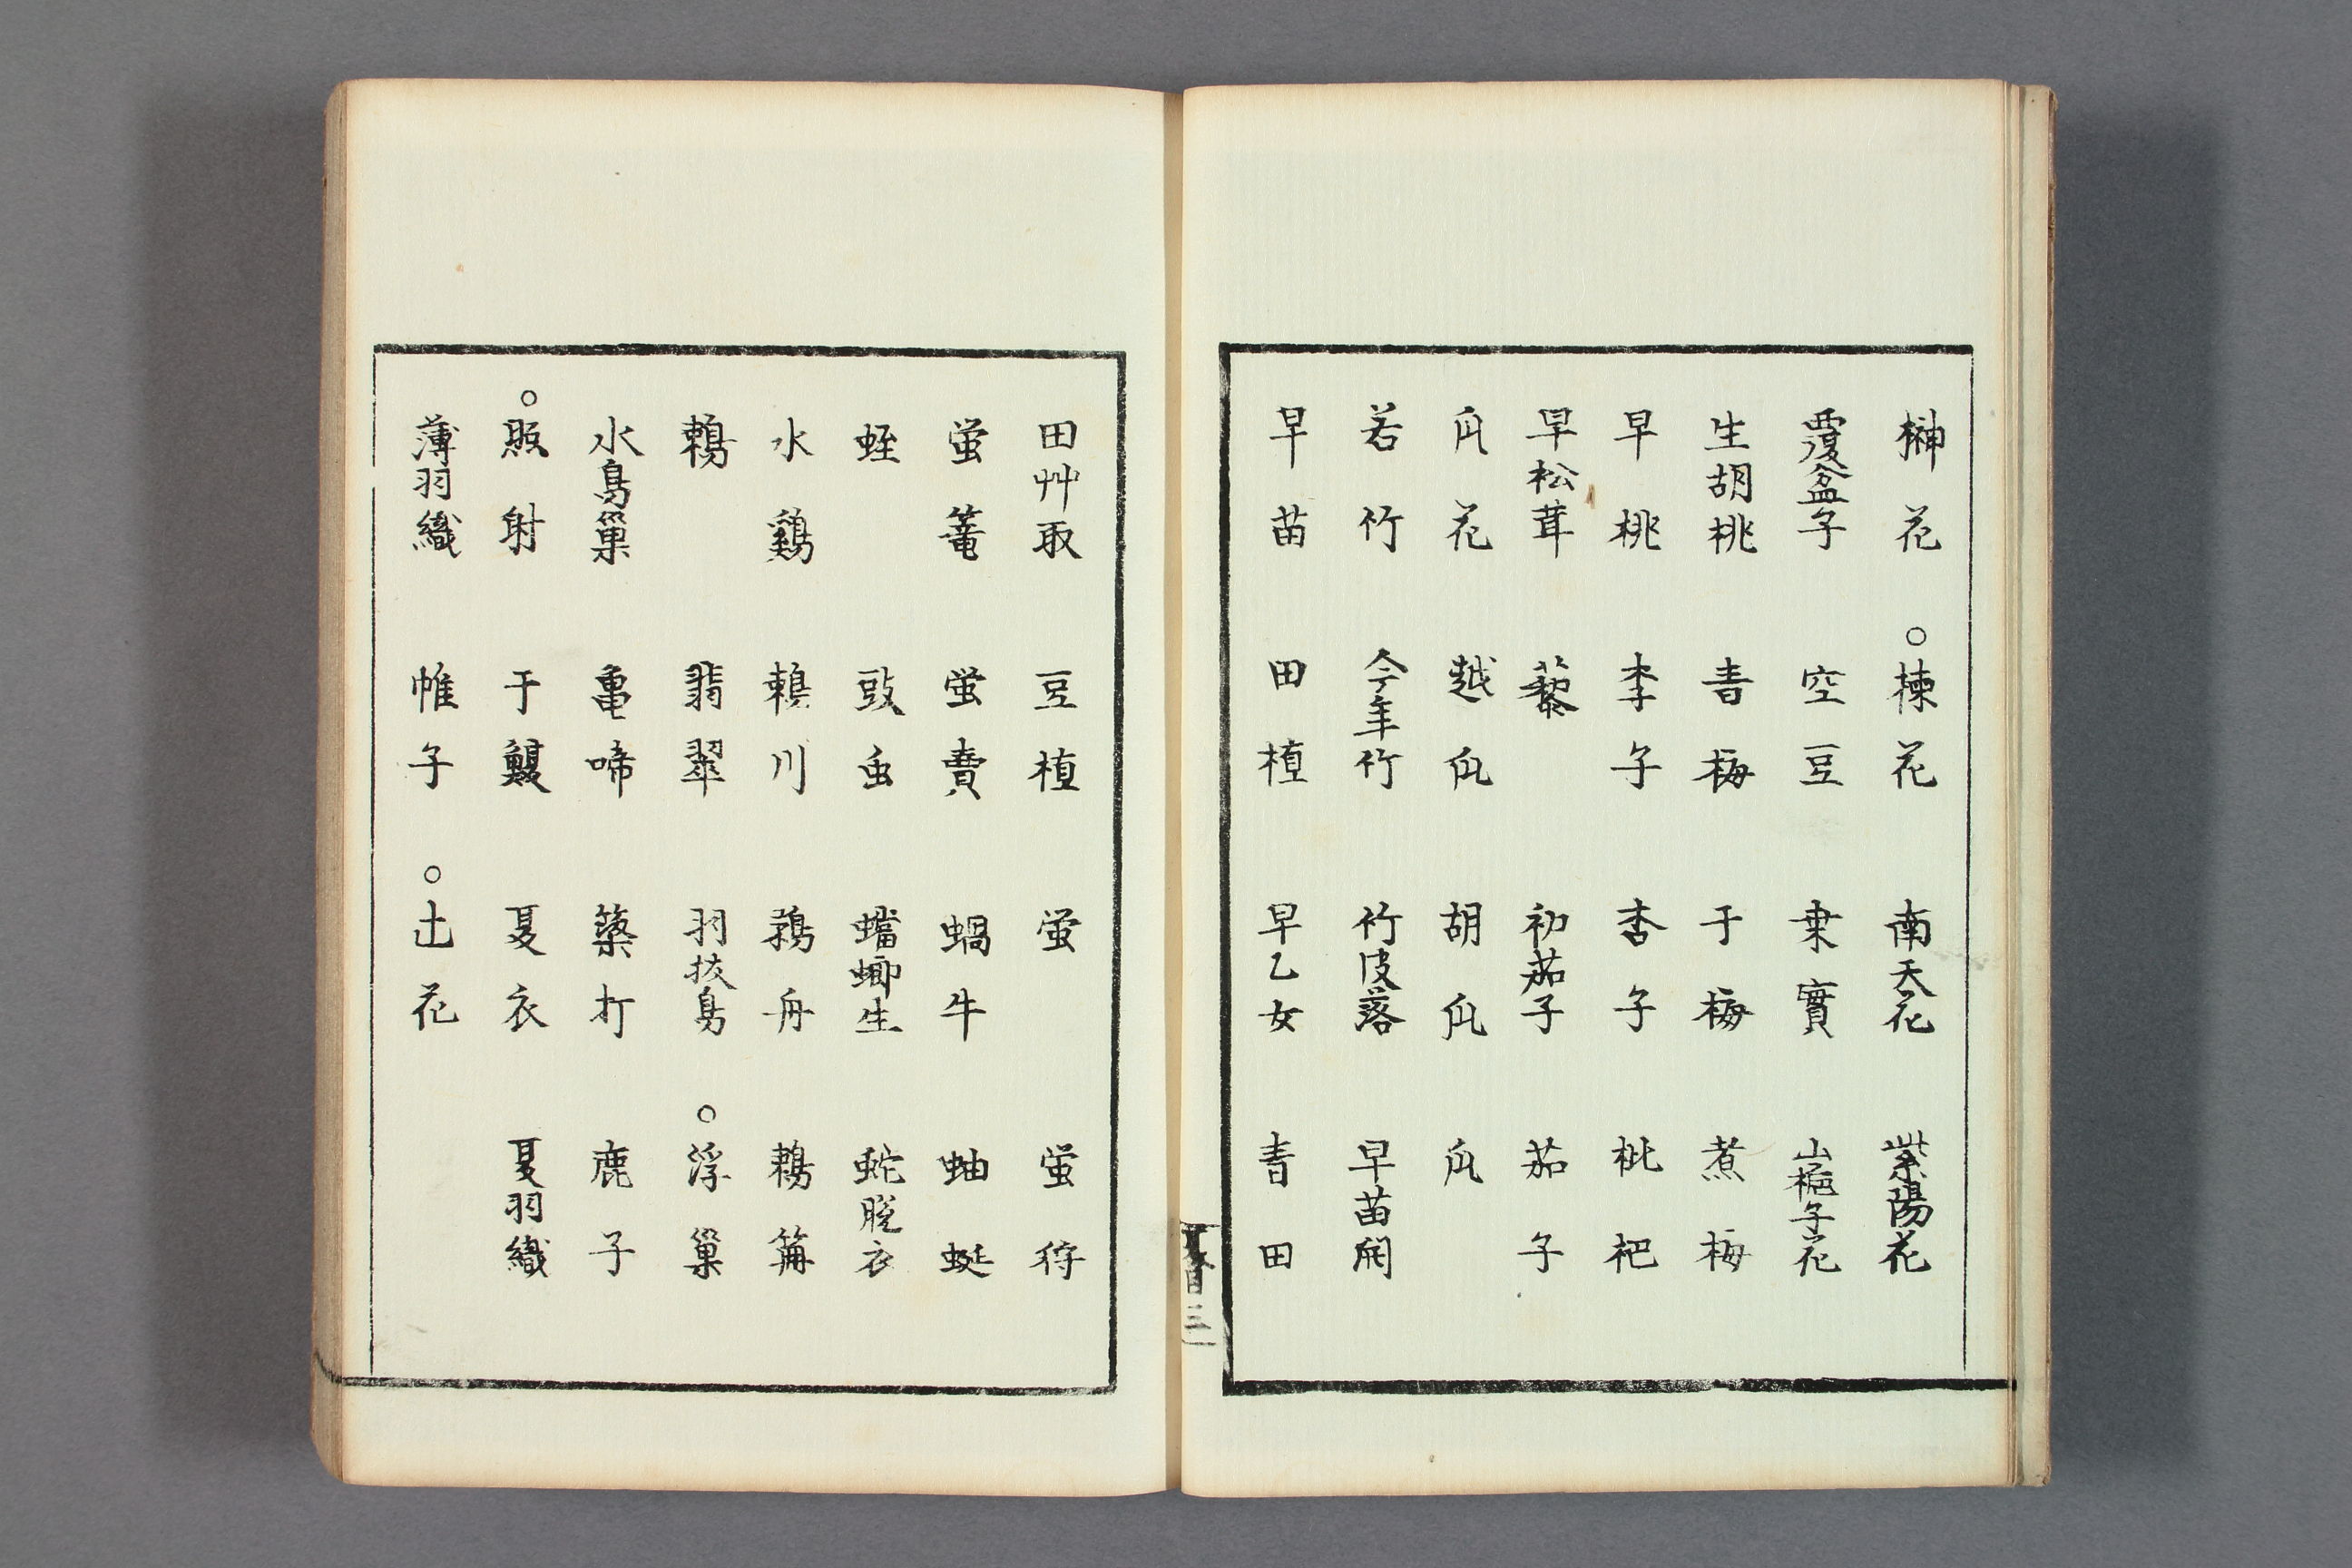 榊花　○楝花　南天花　紫陽花
覆盆子　空豆　桒實　山梔子花
生胡桃　青梅　干梅　煮梅
早桃　李子　杏子　枇杷
早松茸　藜　初茄子　茄子
瓜花　越瓜　胡瓜　瓜
若竹　今年竹　竹皮落　早苗開
早苗　田植　早乙女　青田
夏目 三
田艸取　豆植　蛍　蛍狩
蛍篭　蛍賣　蝸牛　蚰蜒
蛭　豉虫　蟷螂生　蛇脱衣
水鶏　鵜川　鵜舟　鵜篝
鵜　翡翠　羽抜鳥　○浮巣
水鳥巣　亀啼　簗打　鹿子
○照射　干鰒　夏衣　夏羽織
薄羽織　帷子　○土花